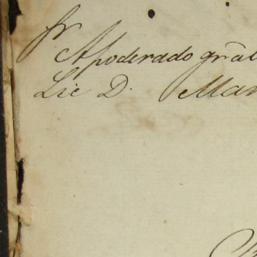 pr
Apoderado grãl
Lic D. Man